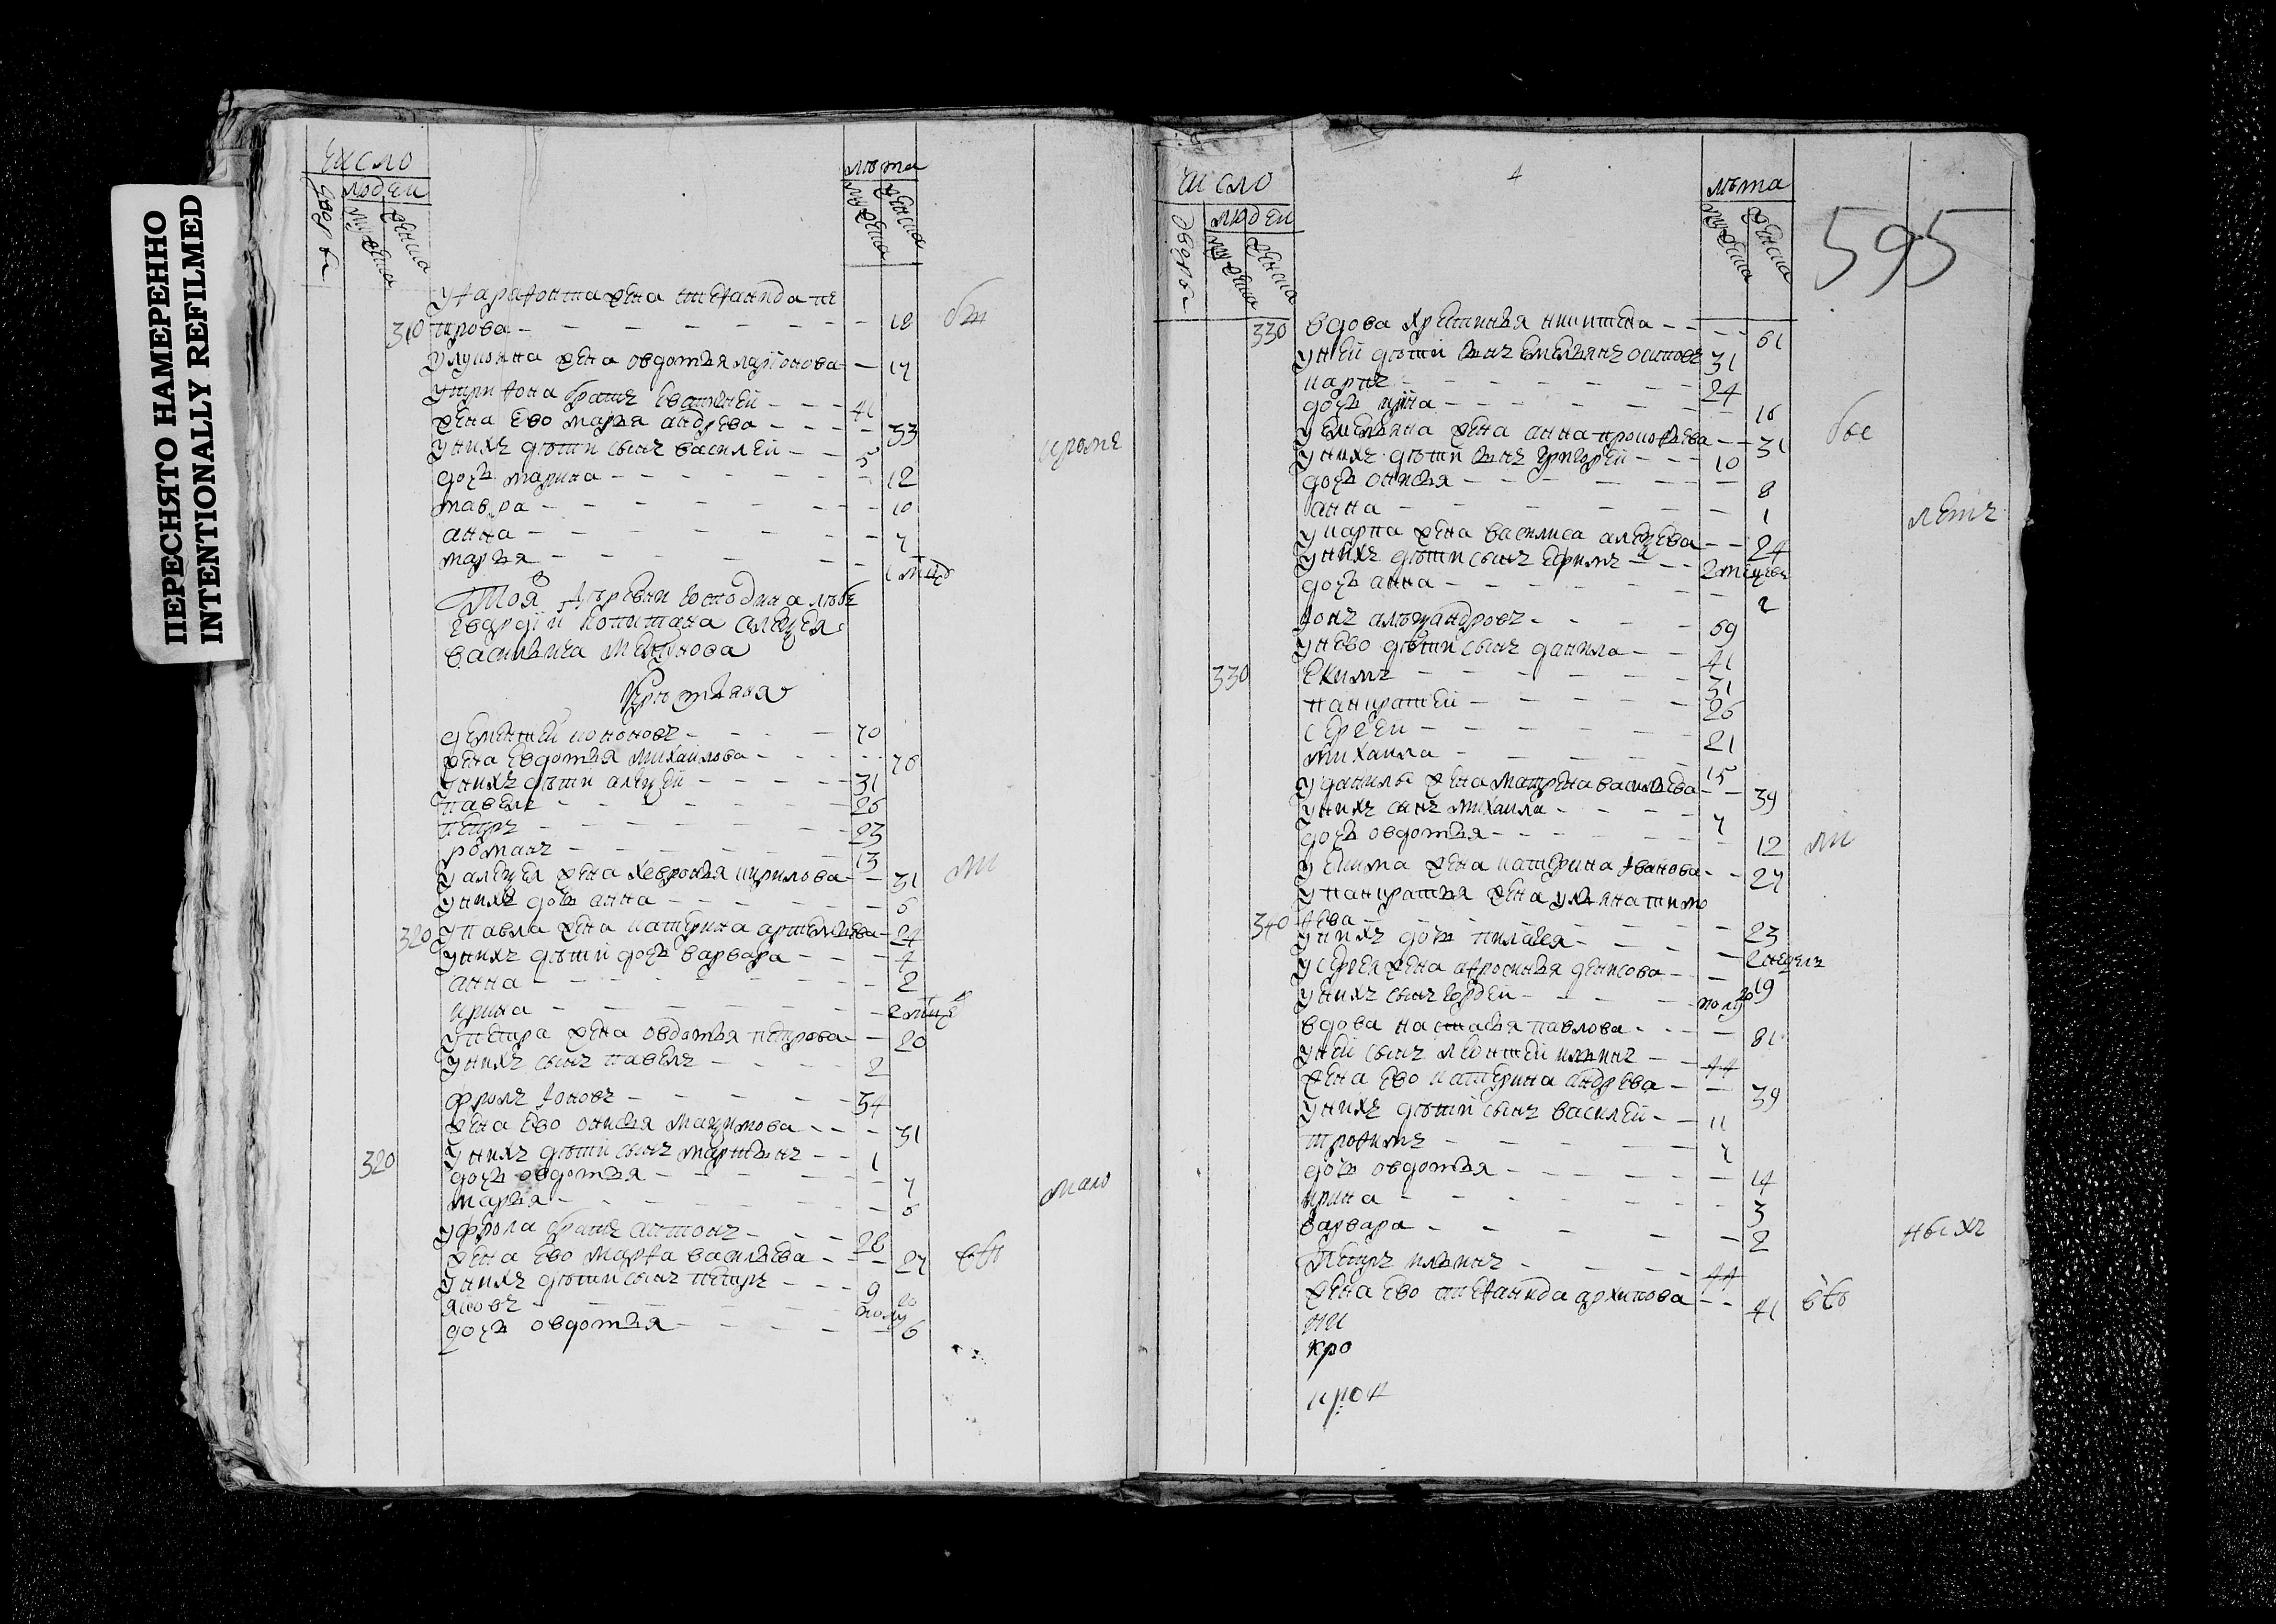 ПЕРЕСНЯТО НАМЕРЕННО
INTENTIONALLY REFILMED
число
людей
дворы
мужеска
женска
лѣта
мужеска
женска
жена степанида пе
310 трова 18
жена овдотья ларионова 17
утрифона братъ евтифей 41
жена ево марья андрева 33
унихъ дѣти сынъ василей 5
кроме
дочь марина 12
мавра 10
анна 7
марья
Тоя деревни господина лейбъ
гвардїи капитана алеѯея
васильича
крестьяня
дементей кононовъ 70
жена евдотья михаилова 70
унихъ дѣти алеѯей 31
павелъ 25
петръ 23
романъ 13
уалеѯея жена хевронья кирилова 31
ли
унихъ дочь анна 5
320 упавла жена катерина артемьева 24
унихъ дѣти дочь варвара 4
анна 2
ирина 2
упетра жена овдотья петрова 20
унихъ сынъ павелъ 2
фролъ 34
жена ево онисья маѯимова 31
320 унихъ дѣти сынъ мартынъ 1
дочь овдотья 7
марья 5
мало
уфрола братъ антонъ 28
жена ево марѳа васильева 27
унихъ дѣти сынъ петръ 9
яковъ полу
дочь овдотья 6
595
число
людей
дворы
мужеска
женска
лѣта
мужеска
женска
330 вдова хрестинья никитена 61
уней дѣти сынъ емельянъ осиповъ 31
карпъ 24
дочь 16
уемельяна жена анна прокоѳьева 31
унихъ дѣти сынъ григорей 10
дочь онисья 8
анна 1
летъ
укарпа жена василиса алеѯева 24
унихъ дѣти сынъ ефимъ 2
дочь анна 2
алеѯандровъ 69
унево дѣти сынъ данила 41
330 екимъ 31
панкратей 26
сергей 21
михаила 15
уданилы жена матрена васильева 39
унихъ сынъ михаила 7
дочь овдотья 12
ли
уекима жена катерина иванова 27
упанкратья жена ульяна тимо
340 ѳева 23
унихъ дочь пилагея 2 недель
усергея жена аѳросинья денисова 19
унихъ сынъ гордей полу
вдова настасья павлова 81
уней сынъ леонтей ильинъ 44
жена ево катерина андрева 39
унихъ дѣти сынъ василей 11
троѳимъ 7
дочь овдотья 14
ирина 3
варвара 2
ныхъ
Петръ ильинъ 44
жена ево степанида архипова 41
кро